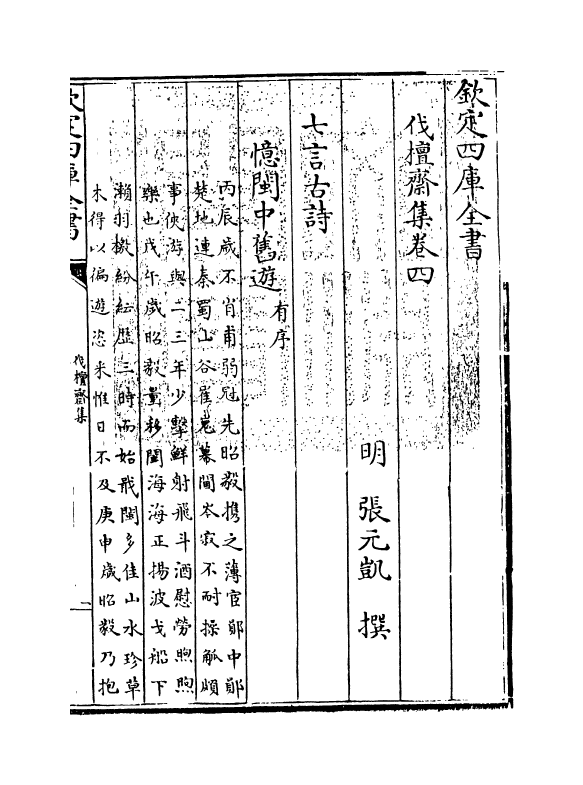 欽定四庫全書
伐檀齋集卷四
明 張元凱 撰
七言古詩
憶閩中舊遊有序
丙辰歲不肖甫弱冠先昭毅携之薄宦鄖中鄖
楚地連秦蜀山谷崔嵬幕閒岑寂不耐操觚頗
事俠游與二三年少擊鮮射飛斗酒慰勞煦煦
樂也戊午歲昭毅量移閩海海正揚波戈船下
瀨羽檄紛紜歴三時而始戢閩多佳山水珍草
木得以徧遊恣采惟日不及庚申歲昭毅乃抱
欽定四庫全書
伐檀齋集
一